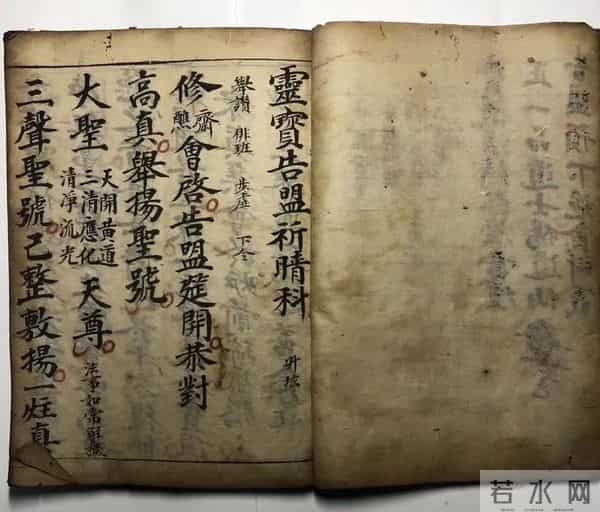 靈寶告盟祈晴科
舉讚 俳班 步虛
修齋醮會啓告盟筵開恭對
高真舉揚聖號
大聖 天開黃道 三清應化 清淨流光 天尊 法事如常
三聲聖號已整敷揚一炷真
若水网